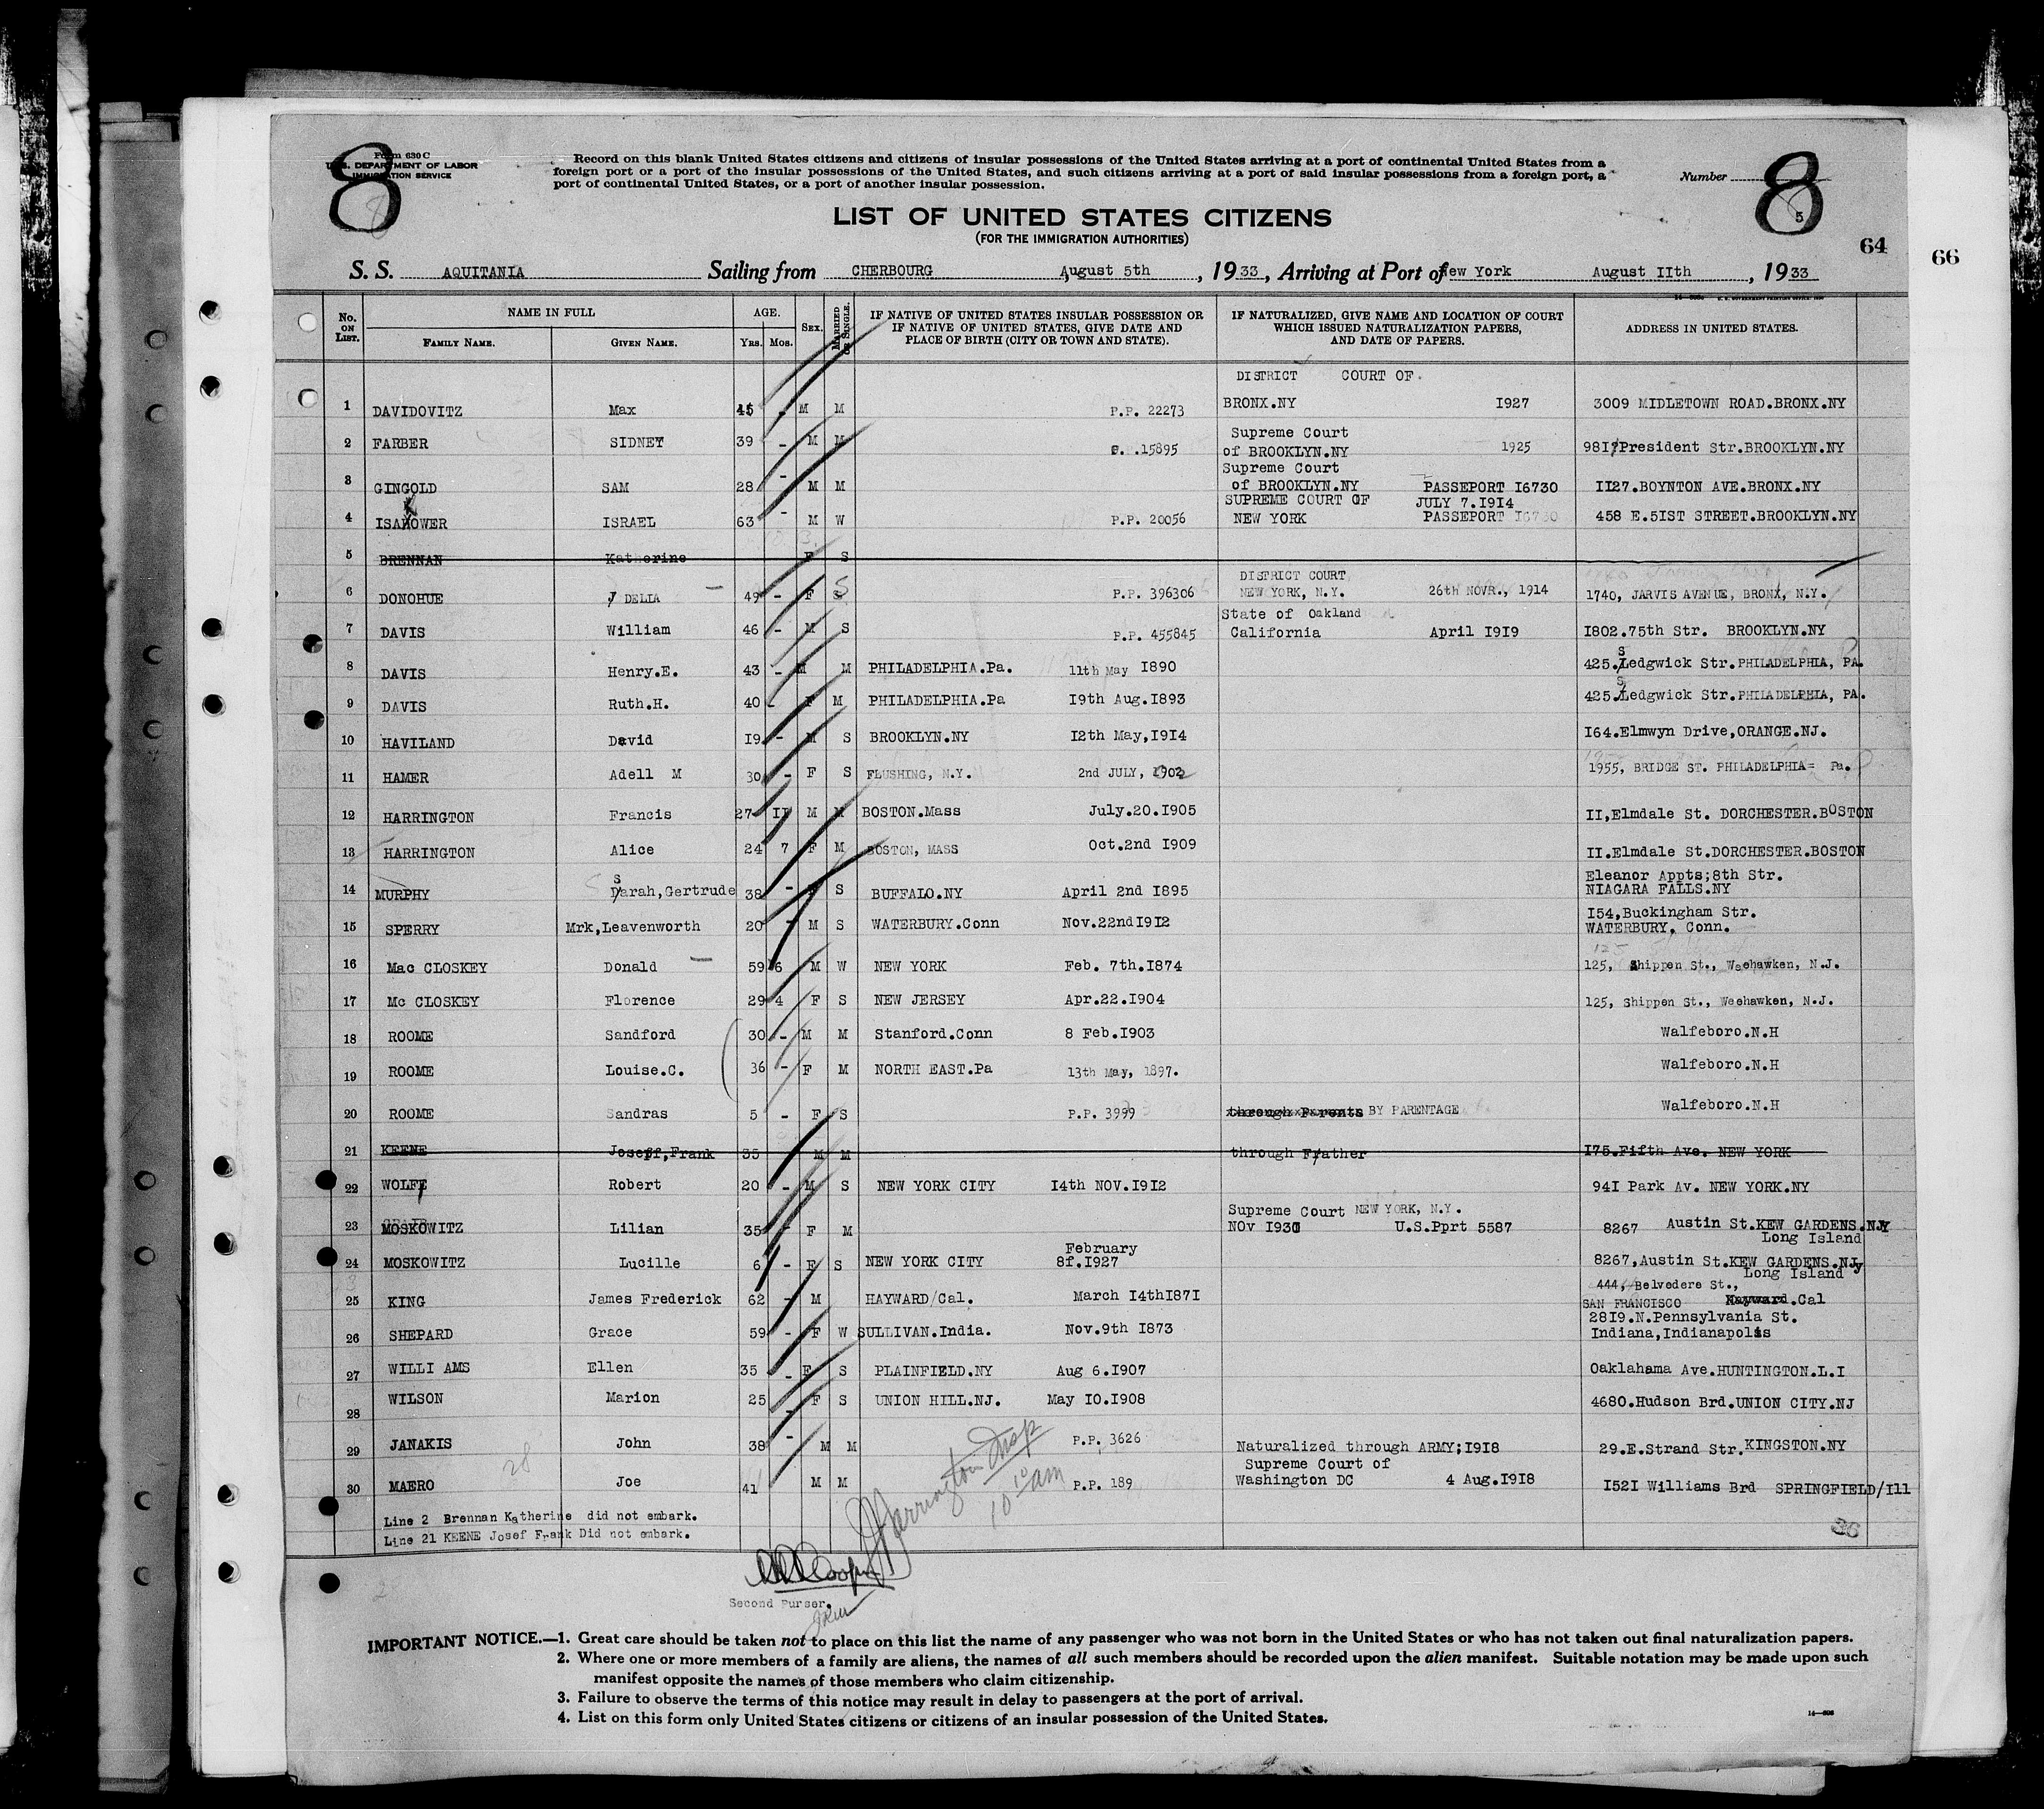 8
Form 630 C
U.S. DEPARTMENT OF LABOR
IMMIGRATION SERVICE
Record on this blank United States citizens and citizens of insular possessions of the United States arriving at a port of continental United States from a
foreign port or a port of the insular possessions of the United States, and such citizens arriving at a port of said insular possessions from a foreign port, a
port of continental United States, or a port of another insular possession.
Number 8
5
LIST OF UNITED STATES CITIZENS
(FOR THE IMMIGRATION AUTHORITIES)
64
66
S. S. AQUITANIA Sailing from CHERBOURG August 5th, 1933, Arriving at Port of New York August IIth, 1933
No. ON LIST. NAME IN FULL FAMILY NAME. GIVEN NAME. AGE. Yrs. Mos. SEX. MARRIED OR SINGLE. IF NATIVE OF UNITED STATES INSULAR POSSESSION OR IF NATIVE OF UNITED STATES, GIVE DATE AND PLACE OF BIRTH (CITY OR TOWN AND STATE). IF NATURALIZED, GIVE NAME AND LOCATION OF COURT WHICH ISSUED NATURALIZATION PAPERS, AND DATE OF PAPERS. ADDRESS IN UNITED STATES.
DISTRICT COURT OF.
1 DAVIDOVITZ Max 45 - M M P.P. 22273 BRONX.NY I927 3009 MIDLETOWN ROAD.BRONX.NY
Supreme Court
2 FARBER SIDNEY 39 - M M .15895 of BROOKLYN.NY 1925 98I President Str.BROOKLYN.NY
Supreme Court
3 GINGOLD SAM 28 - M M of BROOKLYN.NY PASSEPORT I6730 II27.BOYNTON AVE.BRONX.NY
SUPREME COURT OF JULY 7.I9I4
4 ISAKOWER ISRAEL 63 - M W P.P. 20056 NEW YORK PASSEPORT I6730 458 E.5IST STREET.BROOKLYN.NY
5 BRENNAN Katherine F S
DISTRICT COURT
6 DONOHUE DELIA 49 - F S P.P. 396306 NEW YORK, N.Y. 26th NOVR., 1914 1740, JARVIS AVENUE, BRONX, N.Y.
State of Oakland
7 DAVIS William 46 - M S P.P. 455845 California April I9I9 I802.75th Str. BROOKLYN.NY
8 DAVIS Henry.E. 43 - M M PHILADELPHIA.Pa. 11th May I890 425.Sedgwick Str.PHILADELPHIA, PA.
9 DAVIS Ruth.H. 40 - F M PHILADELPHIA.Pa I9th Aug.I893 425.Sedgwick Str.PHILADELPHIA, PA.
10 HAVILAND David I9 - M S BROOKLYN.NY I2th May,I9I4 I64.Elmwyn Drive,ORANGE.NJ.
11 HAMER Adell M 30 - F S FLUSHING, N.Y. 2nd JULY, 1902 1955, BRIDGE ST. PHILADELPHIA= Pa.
12 HARRINGTON Francis 27 II M M BOSTON.Mass July.20.I905 II,Elmdale St. DORCHESTER.BOSTON
13 HARRINGTON Alice 24 7 F M BOSTON, MASS Oct.2nd I909 II.Elmdale St.DORCHESTER.BOSTON
14 MURPHY Sarah,Gertrude 38 - F S BUFFALO.NY April 2nd I895 Eleanor Appts;8th Str.
NIAGARA FALLS.NY
15 SPERRY Mrk,Leavenworth 20 - M S WATERBURY.Conn Nov.22ndI9I2 I54,Buckingham Str.
WATERBURY. Conn.
16 Mac CLOSKEY Donald 59 6 M W NEW YORK Feb. 7th.I874 125, Shippen St., Weehawken, N.J.
17 Mc CLOSKEY Florence 29 4 F S NEW JERSEY Apr.22.I904 125, Shippen St., Weehawken, N.J.
18 ROOME Sandford 30 - M M Stanford.Conn 8 Feb.I903 Walfeboro.N.H
19 ROOME Louise.C. 36 - F M NORTH EAST.Pa 13th May, 1897. Walfeboro.N.H
20 ROOME Sandras 5 - F S P.P. 3999 through Parents BY PARENTAGE Walfeboro.N.H
21 KEENE Joseff,Frank 35 M M through Father I75.Fifth Ave. NEW YORK
22 WOLFF Robert 20 - M S NEW YORK CITY I4th NOV.I9I2 94I Park Av. NEW YORK.NY
Supreme Court NEW YORK, N.Y.
23 MOSKOWITZ Lilian 35 - F M NOv I930 U.S.Pprt 5587 8267 Austin St.KEW GARDENS.NY
Long Island
24 MOSKOWITZ Lucille 6 - F S NEW YORK CITY February
8f.I927 8267,Austin St.KEW GARDENS.NY
Long Island
444, Belvedere St.,
25 KING James Frederick 62 - M HAYWARD/Cal. March I4thI87I SAN FRANCISCO Hayward.Cal
26 SHEPARD Grace 59 - F W SULLIVAN.India. Nov.9th I873 28I9.N.Pennsylvania St.
Indiana,Indianapolis
27 WILLI AMS Ellen 35 - F S PLAINFIELD.NY Aug 6.I907 Oaklahama Ave.HUNTINGTON.L.I
28 WILSON Marion 25 - F S UNION HILL.NJ. May I0.I908 4680.Hudson Brd.UNION CITY.NJ
29 JANAKIS John 38 - M M P.P. 3626 Naturalized through ARMY;I9I8 29.E.Strand Str.KINGSTON.NY
Supreme Court of
30 MAERO Joe 41 M M P.P. 189 Washington DC 4 Aug.I9I8 I52I Williams Brd SPRINGFIELD/Ill
28
Harrington Insp
10 10 am
Line 2 Brennan Katherine did not embark.
Line 21 KEENE Josef Frank Did not embark.
36
Second Purser.
IMPORTANT NOTICE.—1. Great care should be taken not to place on this list the name of any passenger who was not born in the United States or who has not taken out final naturalization papers.
2. Where one or more members of a family are aliens, the names of all such members should be recorded upon the alien manifest. Suitable notation may be made upon such
manifest opposite the names of those members who claim citizenship.
3. Failure to observe the terms of this notice may result in delay to passengers at the port of arrival.
4. List on this form only United States citizens or citizens of an insular possession of the United States.